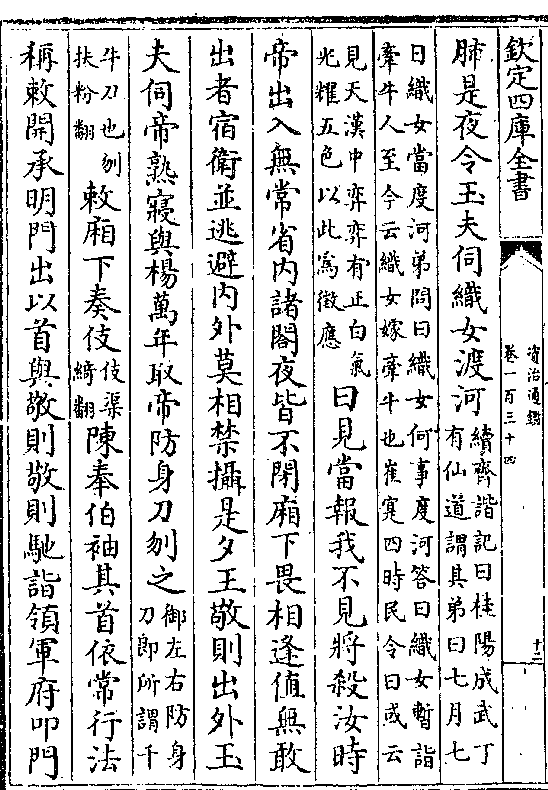 欽定四庫全書
資治通鑑
卷一百三十四
十三
肺是夜令玉夫伺織女渡河續齊諧記曰桂陽成武丁有仙道謂其弟曰七月七
日織女當度河弟問曰織女何事度河答曰織女暫詣牽牛人至今云織女嫁牽牛也崔寔四時民令曰或云
見天漢中弈弈有正白氣光耀五色以此為徵應曰見當報我不見將殺汝時
帝出入無常省内諸閤夜皆不閉廂下畏相逢值無敢
出者宿衛並逃避内外莫相禁攝是夕王敬則出外玉
夫伺帝熟寢與楊萬年取帝防身刀刎之御左右防身刀即所謂千
牛刀也刎扶粉翻敕廂下奏伎伎渠綺翻陳奉伯袖其首依常行法
稱敕開承明門出以首與敬則敬則馳詣領軍府叩門